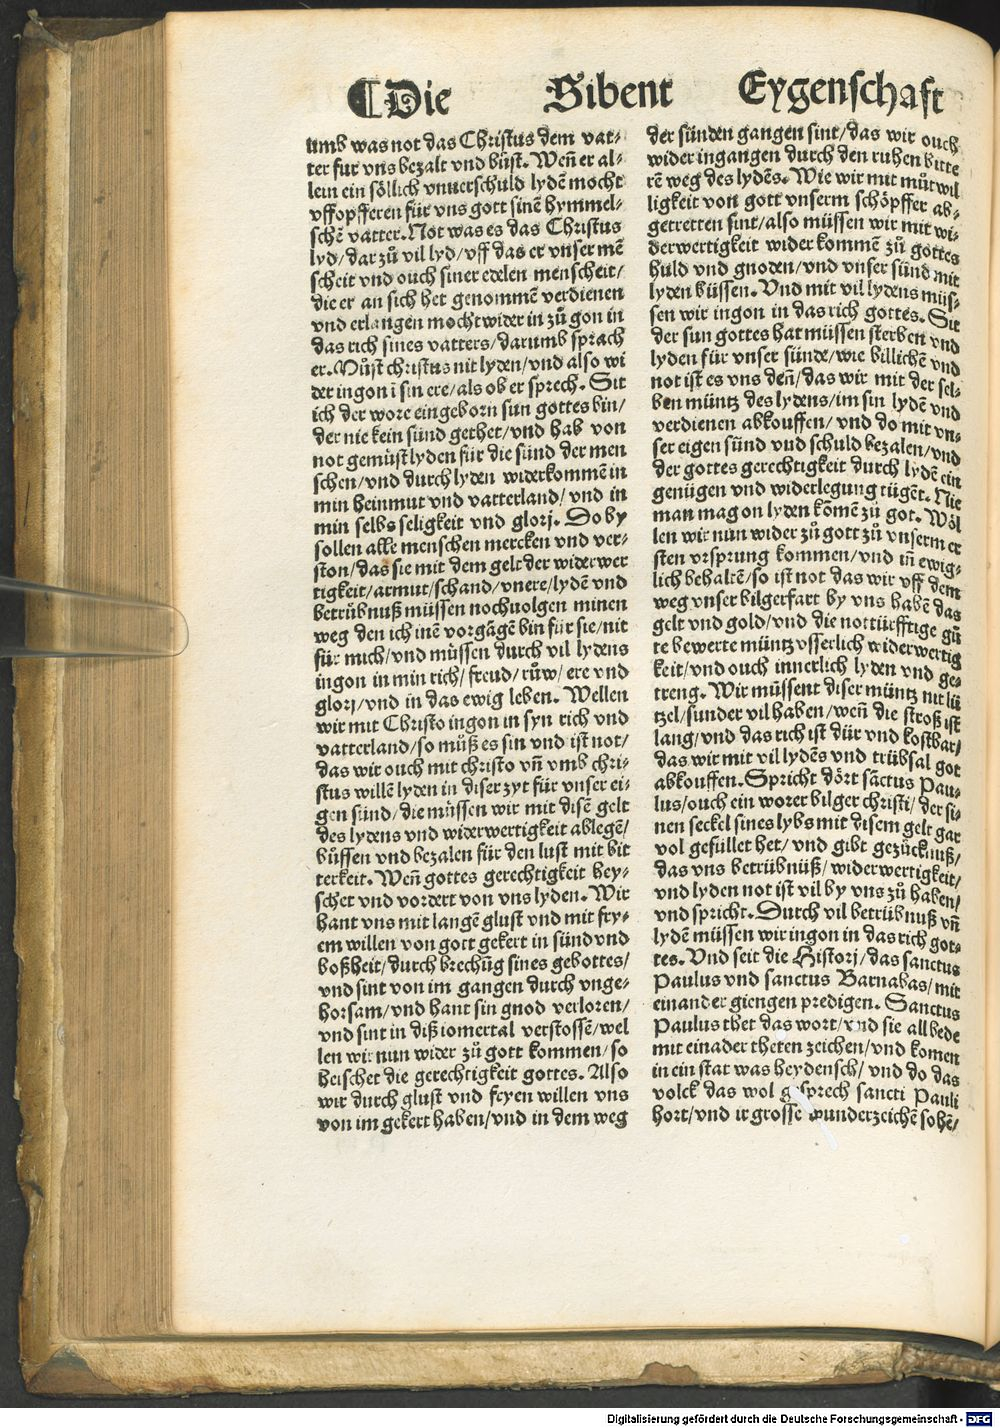 ¶Die Sibent Eygenschaft
umb was not das Christus dem vat⸗
ter fur vns bezalt vnd büst. Weñ er al⸗
lein ein söllich vnuerschuld lydē mocht
vffopfferen für vns gott sinē hymmel⸗
schē vatter. Not was es das Christus
lyd/dar zů vil lyd/vff das er vnser mē
scheit vnd ouch siner edelen menscheit/
die er an sich het genommē verdienen
vnd erlangen mocht wider in zů gon in
das rich sines vatters/darumb sprach
er. Můst christus nit lyden/vnd also wi
der ingon ī sin ere/als ob er sprech. Sit
ich der wore eingeborn sun gottes bin/
der nie kein sünd gethet/vnd hab von
not gemüst lyden für die sünd der men
schen/vnd durch lyden widerkommē in
min heinmut vnd vatterland/vnd in
min selbs seligkeit vnd glorj. Do by
sollen alle menschen mercken vnd ver⸗
ston/das sie mit dem gelt der widerwer
tigkeit/armut/schand/vnere/lydē vnd
betrübnuß müssen nochuolgen minen
weg den ich inē vorgāgē bin für sie/nit
für mich/vnd müssen durch vil lydens
ingon in min rich/freud/růw/ere vnd
glorj/vnd in das ewig leben. Wellen
wir mit Christo ingon in syn rich vnd
vatterland/so můß es sin vnd ist not/
das wir ouch mit christo vñ vmb chri⸗
stus willē lyden in diser zyt für vnser ei⸗
gen sünd/die müssen wir mit disē gelt
des lydens vnd widerwertigkeit ablegē/
büssen vnd bezalen für den lust mit bit
terkeit. Weñ gottes gerechtigkeit hey⸗
schet vnd vordert von vns lyden. Wir
hant vns mit langē glust vnd mit fry⸗
em willen von gott gekert in sünd vnd
boßheit/durch brechūg sines gebottes/
vnd sint von im gangen durch vnge⸗
horsam/vnd hant sin gnod verloren/
vnd sint in diß iomertal verstossē/wel
len wir nun wider zů gott kommen/so
heischet die gerechtigkeit gottes. Also
wir durch glust vnd freyen willen vns
von im gekert haben/vnd in dem weg
der sünden gangen sint/das wir ouch
wider ingangen durch den ruhen bitte
rē weg des lydēs. Wie wir mit můtwil
ligkeit von gott vnserm schöpffer ab⸗
getretten sint/also müssen wir mit wi⸗
derwertigkeit wider kommē zů gottes
huld vnd gnoden/vnd vnser sünd mit
lyden büssen. Vnd mit vil lydens müs⸗
sen wir ingon in das rich gottes. Sit
der sun gottes hat müssen sterben vnd
lyden für vnser sünde/wie billichen vnd
not ist es vns deñ/das wir mit der sel⸗
ben müntz des lydens/im sin lydē vnd
verdienen abkouffen/vnd do mit vn⸗
ser eigen sünd vnd schuld bezalen/vnd
der gottes gerechtigkeit durch lydē ein
genügen vnd widerlegung tügēt. Nie
man mag on lyden kōmē zů got. Wöl
len wir nun wider zů gott zů vnserm er
sten vrsprung kommen/vnd iñ ewig⸗
lich behaltē/so ist not das wir vff dem
weg vnser bilgerfart by vns habē das
gelt vnd gold/vnd die nottürfftige gů
te bewerte müntz vsserlich widerwertig
keit/vnd ouch innerlich lyden vnd ge⸗
treng. Wir müssent diser müntz nit lü
tzel/sunder vil haben/weñ die stroß ist
lang/vnd das rich ist dür vnd kostbar/
das wir mit vil lydēs vnd trübsal got
abkouffen. Spricht dört sāctus Pau⸗
lus/ouch ein worer bilger christi/der si⸗
nen seckel sines lybs mit disem gelt gar
vol gefüllet het/vnd gibt gezücknuß/
das vns betrübnüß/widerwertigkeit/
vnd lyden not ist vil by vns zů haben/
vnd spricht. Durch vil betrübnuß vñ
lydē müssen wir ingon in das rich got⸗
tes. Vnd seit die Historj/das sanctus
Paulus vnd sanctus Barnabas/mit
einander giengen predigen. Sanctus
Paulus thet das wort/vnd sie all bede
mit einader theten zeichen/vnd komen
in ein stat was heydensch/vnd do das
volck das wol gesprech sancti Pauli
hort/vnd ir grosse wunderzeichē sohē/
Digitalisierung gefördert durch die Deutsche Forschungsgemeinschaft - DFG